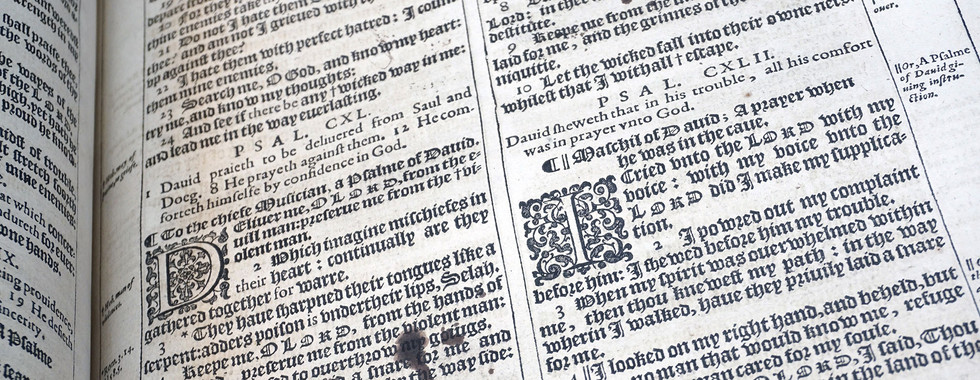 ball praise thee
the words of
the wayes of the
of the LORD.
high, yet hath
proud he
midst of trouble,
stretch forth
mine enemies,
that which concer-
endureth for euer:
owne hands.
IX.
ing prouid
19 He defieth
sincerity.
A Psalme
21 Do not I hate them
and am not I grieued with
vp against thee?
22 I hate them with perfect hatred: I count
them mine enemies.
23 Search me, O God, and know my heart:
try me, and know my thoughts:
24 And see if there be any † wicked way in me:
and lead me in the way euerlasting.
PSAL. CXL.
1 Dauid prayeth to be deliuered from Saul and
Doeg. 8 He prayeth against them. 12 He com-
forteth himselfe by confidence in God.
¶ To the chiefe Musician, a Psalme of Dauid.
DEliuer me, O LORD, from the e-
uill man: preserue me from the † vi-
olent man.
2 Which imagine mischiefes in
their heart: continually are they
gathered together for warre.
3 * They haue sharpned their tongues like a
serpent: adders poison is vnder their lips, Selah.
Keepe me, O LORD, from the hands of
preserue me from the violent man:
to ouerthrow my goings.
a snare for me and
the way side:
8
LORD:
destitute.
9 Keepe me from the
laid for me, and the grinnes of the
niquitie.
10 Let the wicked fall into their owne nets:
whilest that I withall † escape.
PSAL. CXLII.
Dauid sheweth that in his trouble, all his comfort
was in prayer vnto God.
¶ || Maschil of Dauid; A prayer when
he was in the caue.
I Cried vnto the LORD with my
voice: with my voice vnto the
LORD did I make my supplica-
tion.
2 I powred out my complaint
before him: I shewed before him my trouble.
3 When my spirit was ouerwhelmed within
me, then thou knewest my path: in the way
wherin I walked, haue they priuily laid a snare
for me.
|| I looked on my right hand, and beheld, but
no man that would know me, refuge
no man cared for my soule.
O LORD, I said, Thou
the land of the
ouer.
||Or, A Psalme
of Dauid gi-
uing instru-
ction.